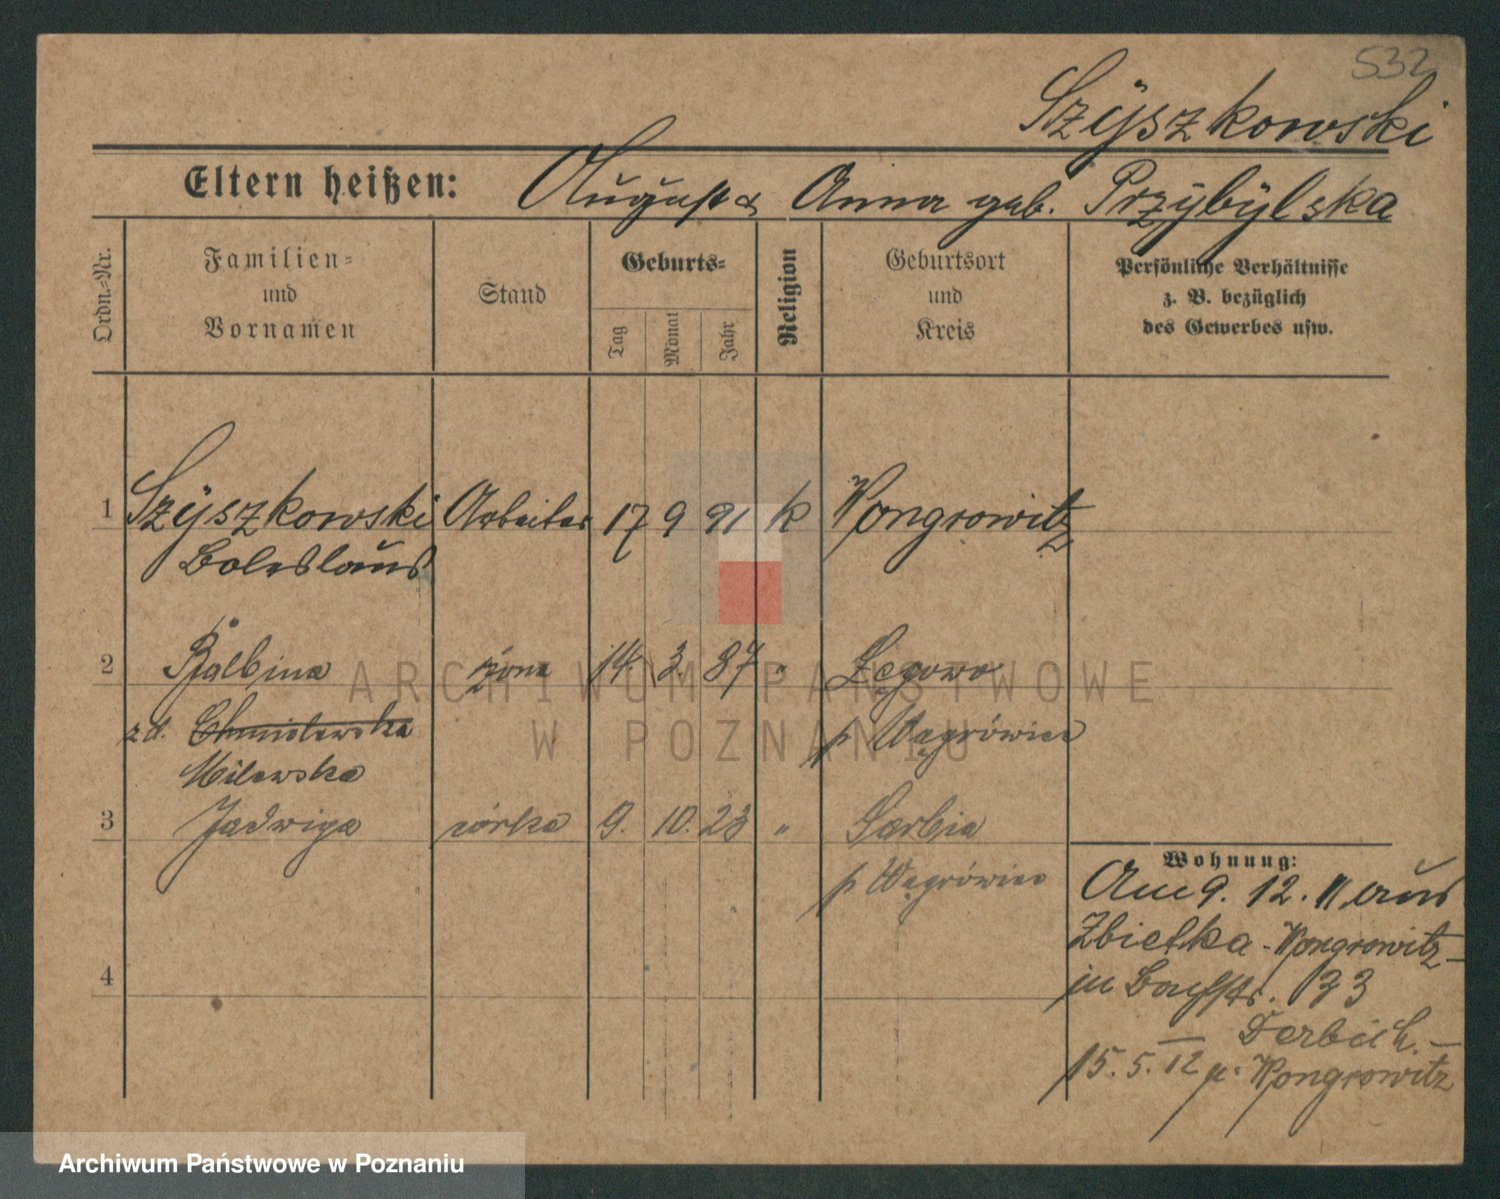 532
Szÿszkowski
Eltern heißen: August & Anna geb. Przÿbÿlska
Ordn.-Nr.
Familien-
und
Vornamen
Stand
Geburts-
Tag
Monat
Jahr
Religion
Geburtsort
und
Kreis
Persönliche Verhältnisse
z. B. bezüglich
des Gewerbes usw.
1 Szÿszkowski Arbeiter 17 9 91 k Wongrowitz
Boleslaus
2 Balbina żona 14. 3. 87 " Łęgowo
zd. Chmielewska p Wągrówiec
Milewska
3 Jadwiga córka 9. 10. 23 " Sarbia
p Wągrówiec
4
Wohnung:
Am 9. 12. 11 aus
Zbietka - Wongrowitz -
in Bachstr. 33
15. 5. 12 p. Wongrowitz
ARCHIWUM PAŃSTWOWE
W POZNANIU
Archiwum Państwowe w Poznaniu